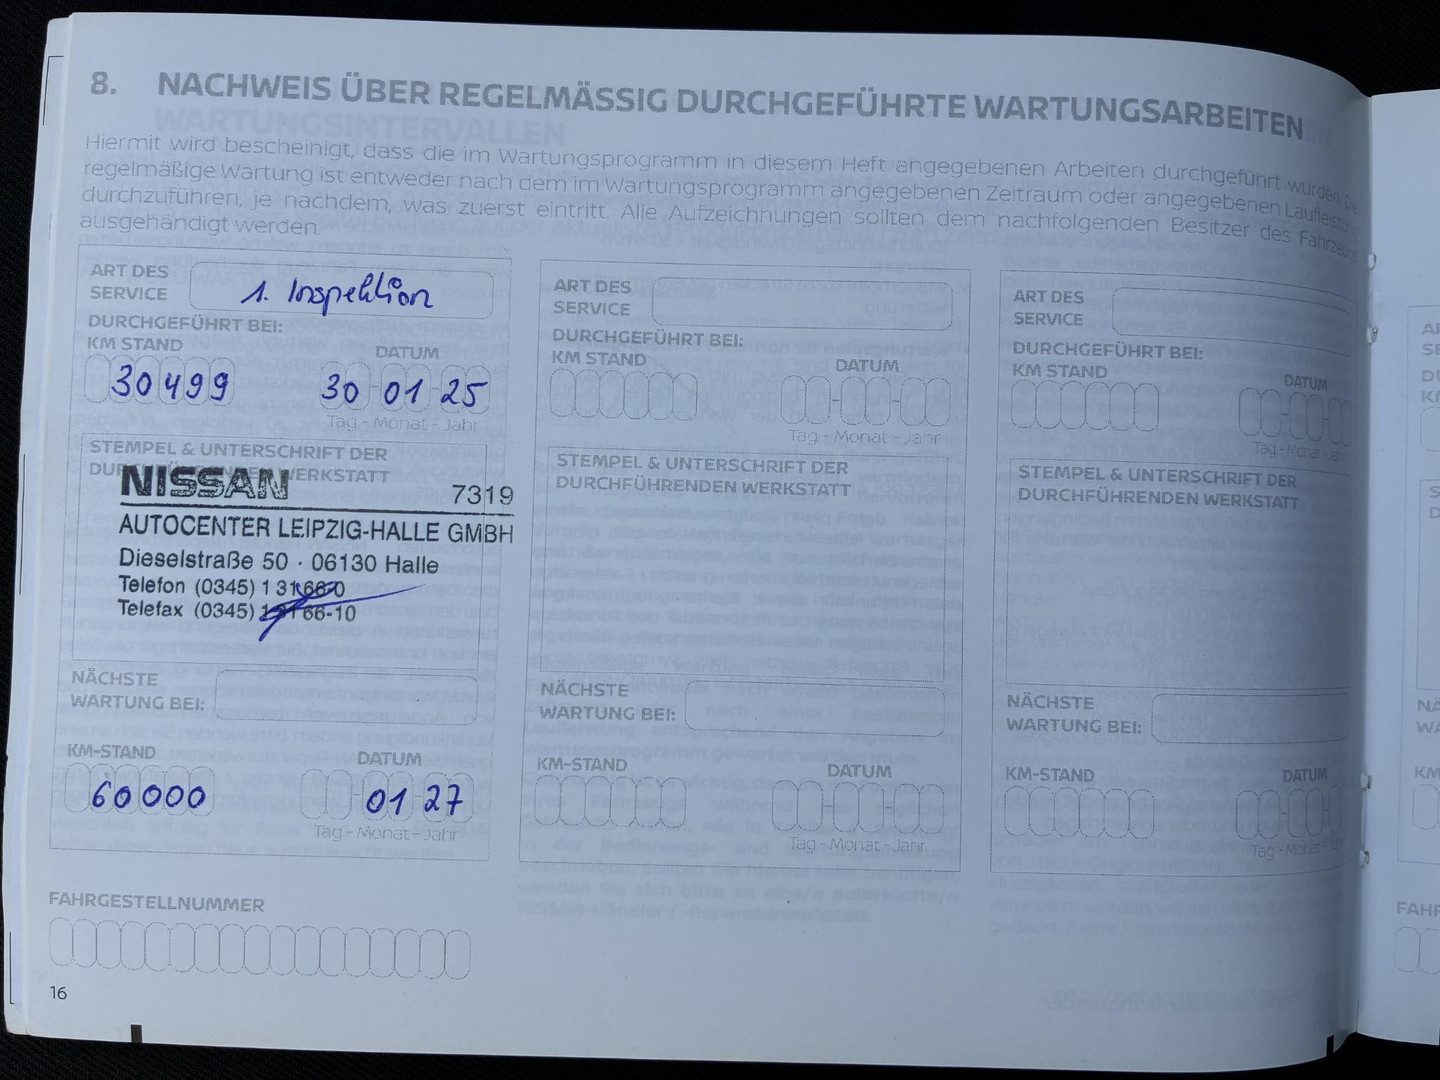 8. NACHWEIS ÜBER REGELMÄSSIG DURCHGEFÜHRTE WARTUNGSARBEITEN
Hiermit wird bescheinigt, dass die im Wartungsprogramm in diesem Heft angegebenen Arbeiten durchgeführt wurden.
regelmäßige Wartung ist entweder nach dem im Wartungsprogramm angegebenen Zeitraum oder angegebenen Laufleistung
durchzuführen, je nachdem, was zuerst eintritt. Alle Aufzeichnungen sollten dem nachfolgenden Besitzer des Fahrzeugs
ausgehändigt werden.
ART DES
SERVICE
1. Inspektion
DURCHGEFÜHRT BEI:
KM STAND
DATUM
30499
30 01 25
Tag - Monat - Jahr
STEMPEL & UNTERSCHRIFT DER
DURCHFÜHRENDEN WERKSTATT
NISSAN 7319
AUTOCENTER LEIPZIG-HALLE GMBH
Dieselstraße 50 · 06130 Halle
Telefon (0345) 1 31 66-0
Telefax (0345) 1 31 66-10
NÄCHSTE
WARTUNG BEI:
KM-STAND
DATUM
60000
01 27
Tag - Monat - Jahr
ART DES
SERVICE
DURCHGEFÜHRT BEI:
KM STAND
DATUM
Tag - Monat - Jahr
STEMPEL & UNTERSCHRIFT DER
DURCHFÜHRENDEN WERKSTATT
NÄCHSTE
WARTUNG BEI:
KM-STAND
DATUM
Tag - Monat - Jahr
ART DES
SERVICE
DURCHGEFÜHRT BEI:
KM STAND
DATUM
Tag - Monat - Jahr
STEMPEL & UNTERSCHRIFT DER
DURCHFÜHRENDEN WERKSTATT
NÄCHSTE
WARTUNG BEI:
KM-STAND
DATUM
Tag - Monat - Jahr
FAHRGESTELLNUMMER
16